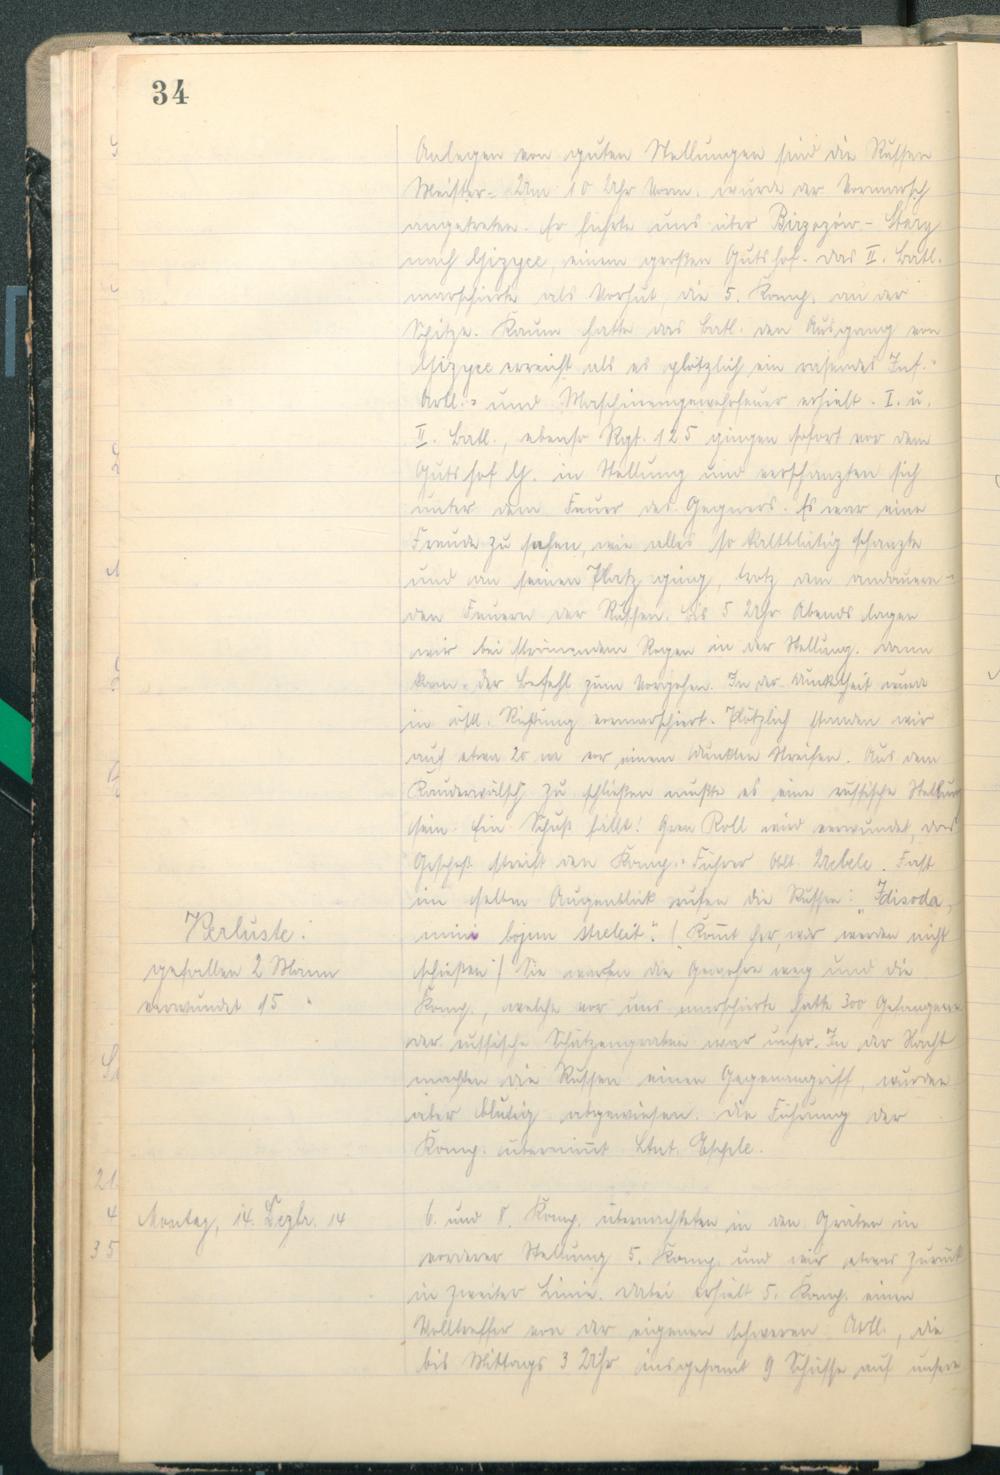 34
Anlegen von guten Stellungen sind die Russen
Meister. Um 10 Uhr Vorm. wurde der Vormarsch
angetreten. Er führte uns über
nach Gizyce, einem großen Gutshof. Das II. Batl.
marschierte als Vorhut, die 5. Komp. an der
Spitze. Kaum hatte das Batl. den Ausgang von
Gizyce erreicht als es plötzlich ein rasendes Inf.-
Artl.- und Maschinengewehrfeuer erhielt. I. u.
II. Batl., ebenso Rgt. 125 gingen sofort vor dem
Gutshof G. in Stellung und verschanzten sich
unter dem Feuer des Gegners. Es war eine
Freude zu sehen, wie alles so kaltblütig schanzte
und an seinen Platz ging, trotz dem andauern-
den Feuern der Russen. Bis 5 Uhr Abends lagen
wir bei strömendem Regen in der Stellung. Dann
kam der Befehl zum Vorgehen. In der Dunkelheit wurde
in östl. Richtung vormarschiert. Plötzlich standen wir
auf etwa 20 m vor einem dunklen Streifen. Aus dem
Kauderwälsch zu schließen mußte es eine russische Stellung
sein. Ein Schuß fällt! Gren Roll wird verwundet, das
Geschoß streift den Komp.-Führer Oblt. Uebele. Fast
im selben Augenblick rufen die Russen: „Idisoda,
(Komt her, wir werden nicht
schießen) Sie warfen die Gewehre weg und die
Komp., welche vor uns marschierte hatte 300 Gefangene
der russische Schützengraben war unser. In der Nacht
machten die Russen einen Gegenangriff, wurden
aber blutig abgewiesen. Die Führung der
Komp. übernimt Ltnt.
Verluste:
gefallen 2 Mann
verwundet 15 "
Montag, 14. Dezbr. 14
6. und 8. Komp. übernachteten in den Gräben in
vorderer Stellung 5. Komp. und wir etwas zurück
in zweiter Linie. Dabei erhielt 5. Komp. einen
Volltreffer von der eigenen schweren Artl., die
bis Mittags 3 Uhr insgesamt 9 Schüsse auf unsere